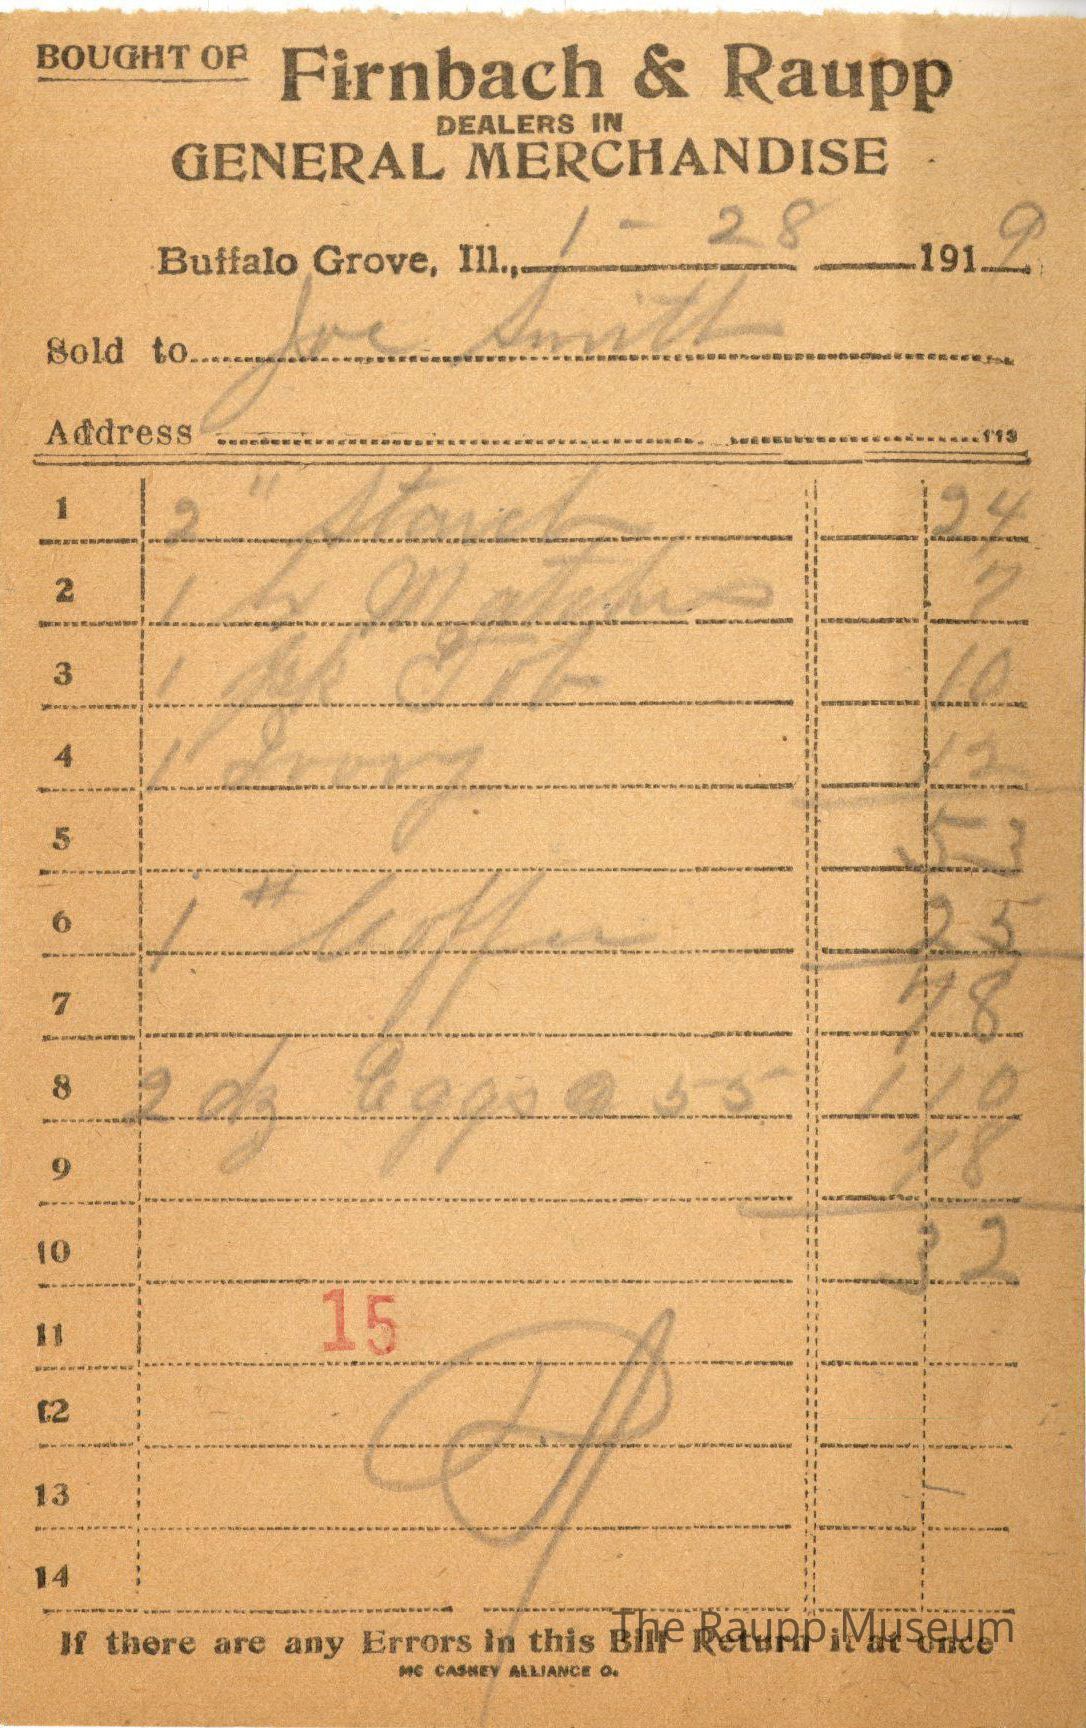 BOUGHT OF Firnbach & Raupp
DEALERS IN
GENERAL MERCHANDISE
Buffalo Grove, Ill., 1 - 28 1919
Sold to Joe Smith
Address 113
1 2 " Starch 24
2 1 Matches 7
3 1 pk Tob 10
4 1 Ivory 12
5 53
6 1 # Coffee 25
7 78
8 2 dz Eggs @ 55 110
9 78
10 32
11 15
12
13
14
The Raupp Museum
If there are any Errors in this Bill Return it at once
MC CASKEY ALLIANCE O.